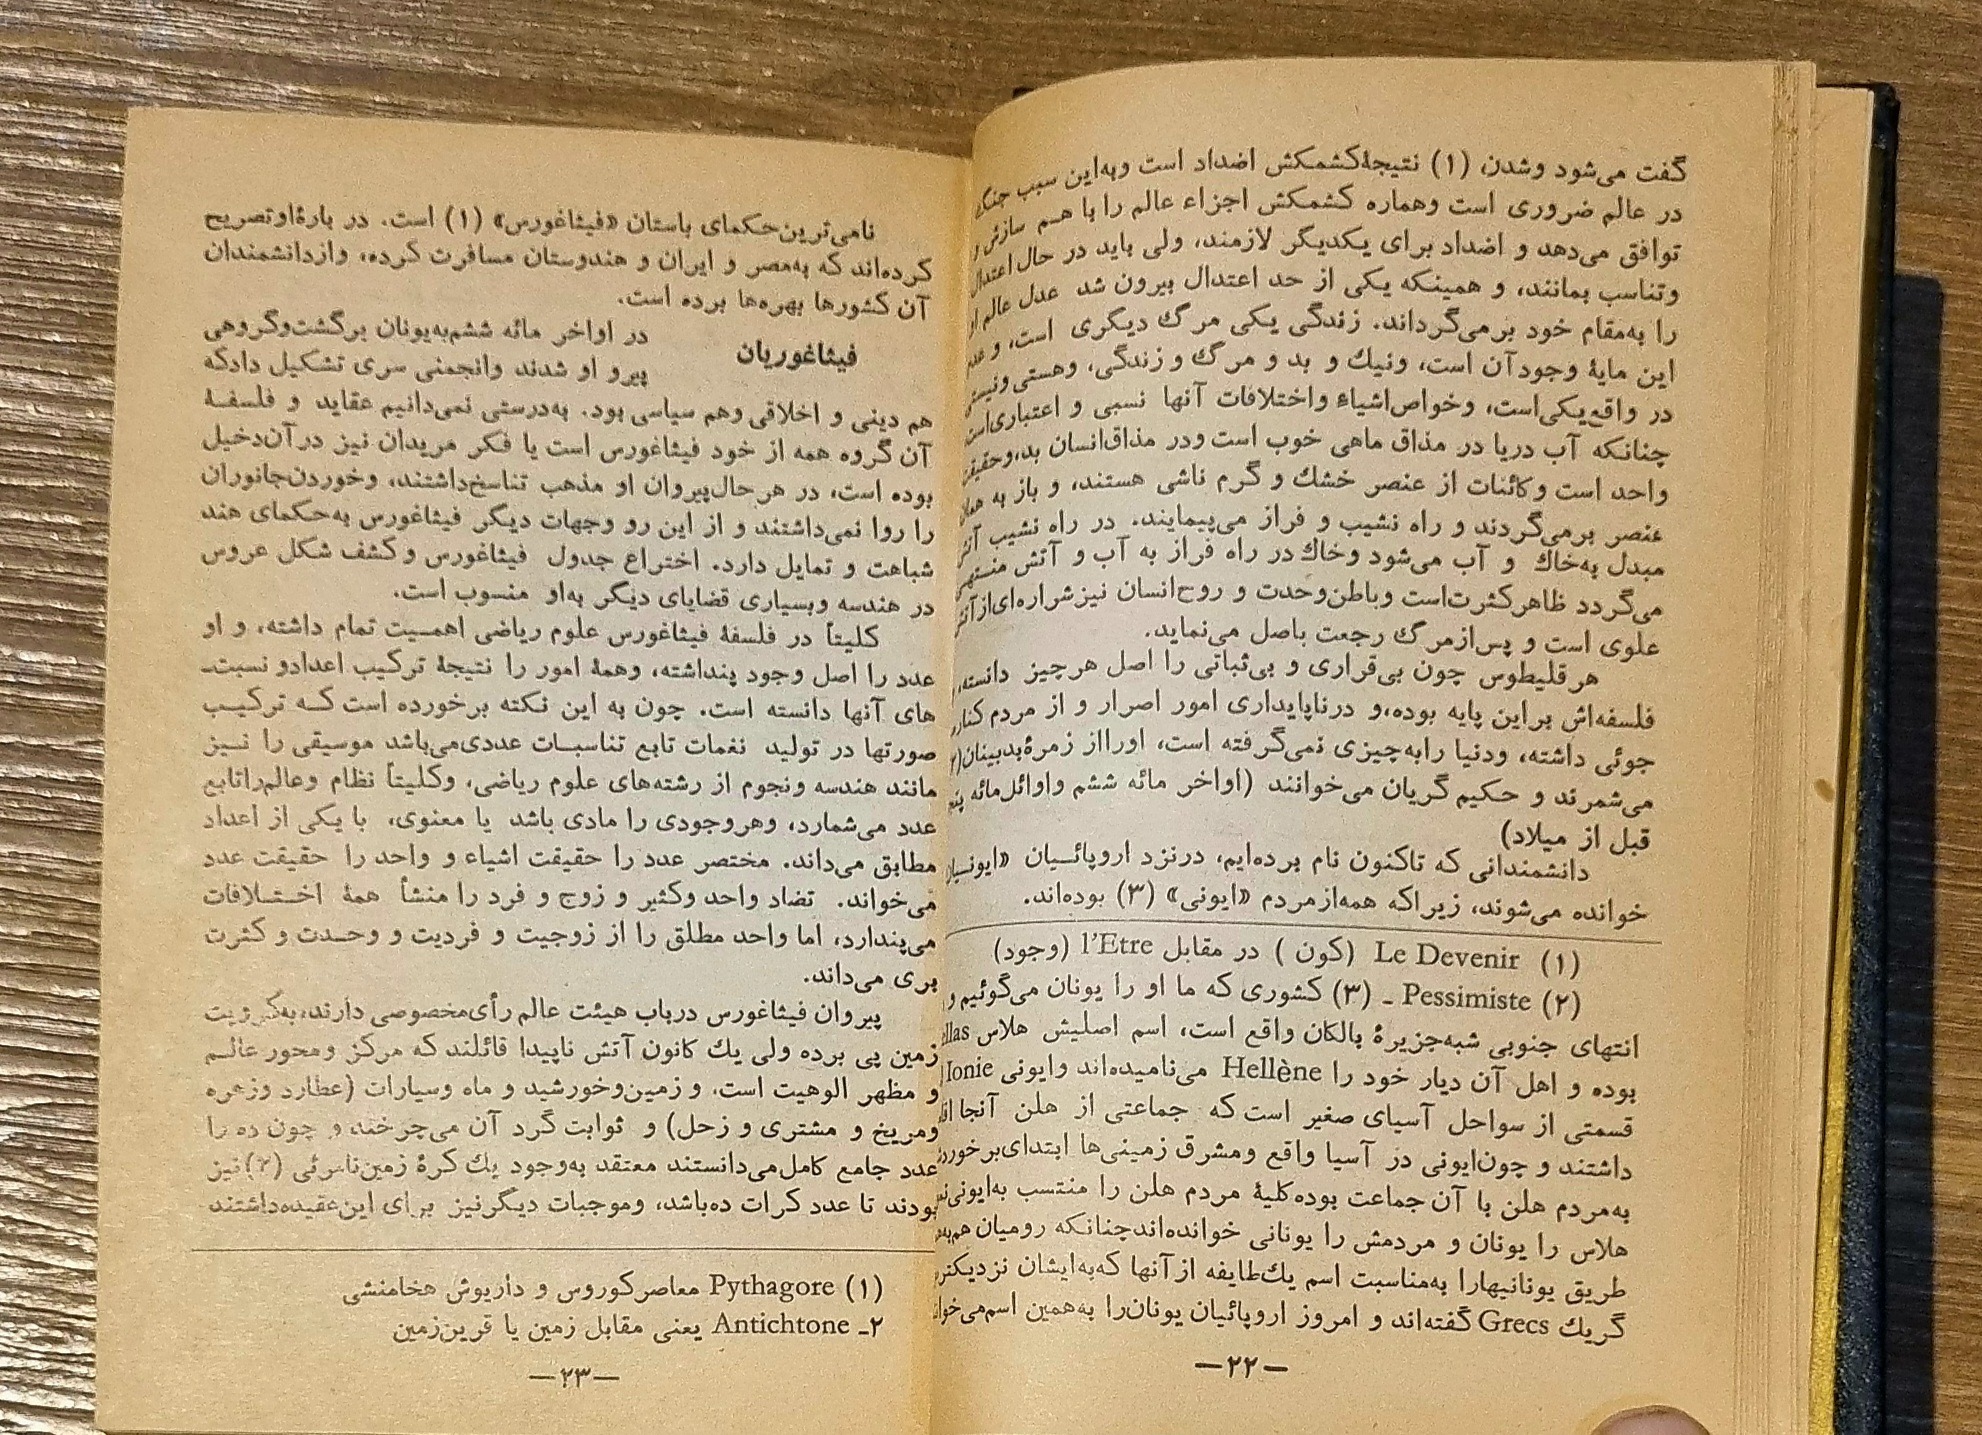 گفت می‌شود وشدن، (۱) نتیجهٔ کشمکش اضداد است وبه‌این سبب جنگ
در عالم ضروری است وهماره کشمکش اجزاء عالم را با هم سازش و
توافق می‌دهد و اضداد برای یکدیگر لازمند، ولی باید در حال اعتدال
وتناسب بمانند، و همینکه یکی از حد اعتدال بیرون شد عدل عالم او
را به‌مقام خود برمی‌گرداند. زندگی یکی مرگ دیگری است، و عدم
این مایهٔ وجود آن است، ونیك و بد و مرگ و زندگی، وهستی ونیستی
در واقع یکی‌است، وخواص‌اشیاء واختلافات آنها نسبی و اعتباری‌است
چنانکه آب دریا در مذاق ماهی خوب است ودر مذاق‌انسان بد، وحقیقت
واحد است وکائنات از عنصر خشك و گرم ناشی هستند، و باز به همان
عنصر برمی‌گردند و راه نشیب و فراز می‌پیمایند. در راه نشیب آتش
مبدل به‌خاك و آب می‌شود وخاك در راه فراز به آب و آتش منتهی
می‌گردد ظاهر کثرت‌است وباطن‌وحدت و روح‌انسان نیز شراره‌ای‌از آتش
علوی است و پس‌ازمرگ رجعت باصل می‌نماید.
هرقلیطوس چون بی‌قراری و بی‌ثباتی را اصل هرچیز دانسته،
فلسفه‌اش براین پایه بوده،و درناپایداری امور اصرار و از مردم کناره
جوئی داشته، ودنیا رابه‌چیزی نمی‌گرفته است، اورااز زمرهٔ‌بدبینان(۲
می‌شمرند و حکیم گریان می‌خوانند (اواخر مائه ششم واوائل‌مائه پنجم
قبل از میلاد)
دانشمندانی که تاکنون نام برده‌ایم، درنزد اروپائیان «ایونیان
خوانده می‌شوند، زیراکه همه‌ازمردم «ایونی» (۳) بوده‌اند.
(۱) Le Devenir (کون ) در مقابل l'Etre (وجود)
(۲) Pessimiste ـ (۳) کشوری که ما او را یونان می‌گوئیم و
انتهای جنوبی شبه‌جزیرهٔ بالکان واقع است، اسم اصلیش هلاس ellas
بوده و اهل آن دیار خود را Hellène می‌نامیده‌اند وایونی Ionie
قسمتی از سواحل آسیای صغیر است که جماعتی از هلن آنجا
داشتند و چون‌ایونی در آسیا واقع ومشرق زمینی‌ها ابتدای‌برخورد
به‌مردم هلن با آن جماعت بوده کلیهٔ مردم هلن را منتسب به‌ایونی
هلاس را یونان و مردمش را یونانی خوانده‌اند چنانکه رومیان
طریق یونانیهارا به‌مناسبت اسم یك‌طایفه از آنها که‌به‌ایشان نزدیکتر
گریك Grecs گفته‌اند و امروز اروپائیان یونان‌را به‌همین اسم
—۲۲—
نامی‌ترین‌حکمای باستان «فیثاغورس» (۱) است. در بارهٔ‌اوتصریح
کرده‌اند که به‌مصر و ایران و هندوستان مسافرت کرده، وازدانشمندان
آن کشورها بهره‌ها برده است.
فیثاغوریان
در اواخر مائه ششم‌به‌یونان برگشت‌وگروهی
پیرو او شدند وانجمنی سری تشکیل دادکه
هم دینی و اخلاقی وهم سیاسی بود. به‌درستی نمی‌دانیم عقاید و فلسفهٔ
آن گروه همه از خود فیثاغورس است یا فکر مریدان نیز در آن‌دخیل
بوده است، در هرحال‌پیروان او مذهب تناسخ‌داشتند، وخوردن‌جانوران
را روا نمی‌داشتند و از این رو وجهات دیگر فیثاغورس به‌حکمای هند
شباهت و تمایل دارد. اختراع جدول فیثاغورس وکشف شکل عروس
در هندسه وبسیاری قضایای دیگر به‌او منسوب است.
کلیتاً در فلسفهٔ فیثاغورس علوم ریاضی اهمیت تمام داشته، و او
عدد را اصل وجود پنداشته، وهمهٔ امور را نتیجهٔ ترکیب اعدادو نسبت‌ـ
های آنها دانسته است. چون به این نکته برخورده است که ترکیب
صورتها در تولید نغمات تابع تناسبات عددی‌می‌باشد موسیقی را نیز
مانند هندسه ونجوم از رشته‌های علوم ریاضی، وکلیتاً نظام وعالم‌راتابع
عدد می‌شمارد، وهروجودی را مادی باشد یا معنوی، با یکی از اعداد
مطابق می‌داند. مختصر عدد را حقیقت اشیاء و واحد را حقیقت عدد
می‌خواند. تضاد واحد وکثیر و زوج و فرد را منشأ همهٔ اختلافات
می‌پندارد، اما واحد مطلق را از زوجیت و فردیت و وحدت و کثرت
بری می‌داند.
پیروان فیثاغورس درباب هیئت عالم رأی‌مخصوصی دارند،به‌کرویت
زمین پی برده ولی یك کانون آتش ناپیدا قائلند که مرکز ومحور عالم
و مظهر الوهیت است، و زمین‌وخورشید و ماه وسیارات (عطارد وزهره
ومریخ و مشتری و زحل) و ثوابت گرد آن می‌چرخند، و چون ده را
عدد جامع کامل‌می‌دانستند معتقد به‌وجود یك کرهٔ زمین‌نامرئی (۲)نیز
بودند تا عدد کرات ده‌باشد، وموجبات دیگرنیز برای این‌عقیده‌داشتند
(۱) Pythagore معاصرکوروس و داریوش هخامنشی
۲ـ Antichtone یعنی مقابل زمین یا قرین‌زمین
—۲۳—